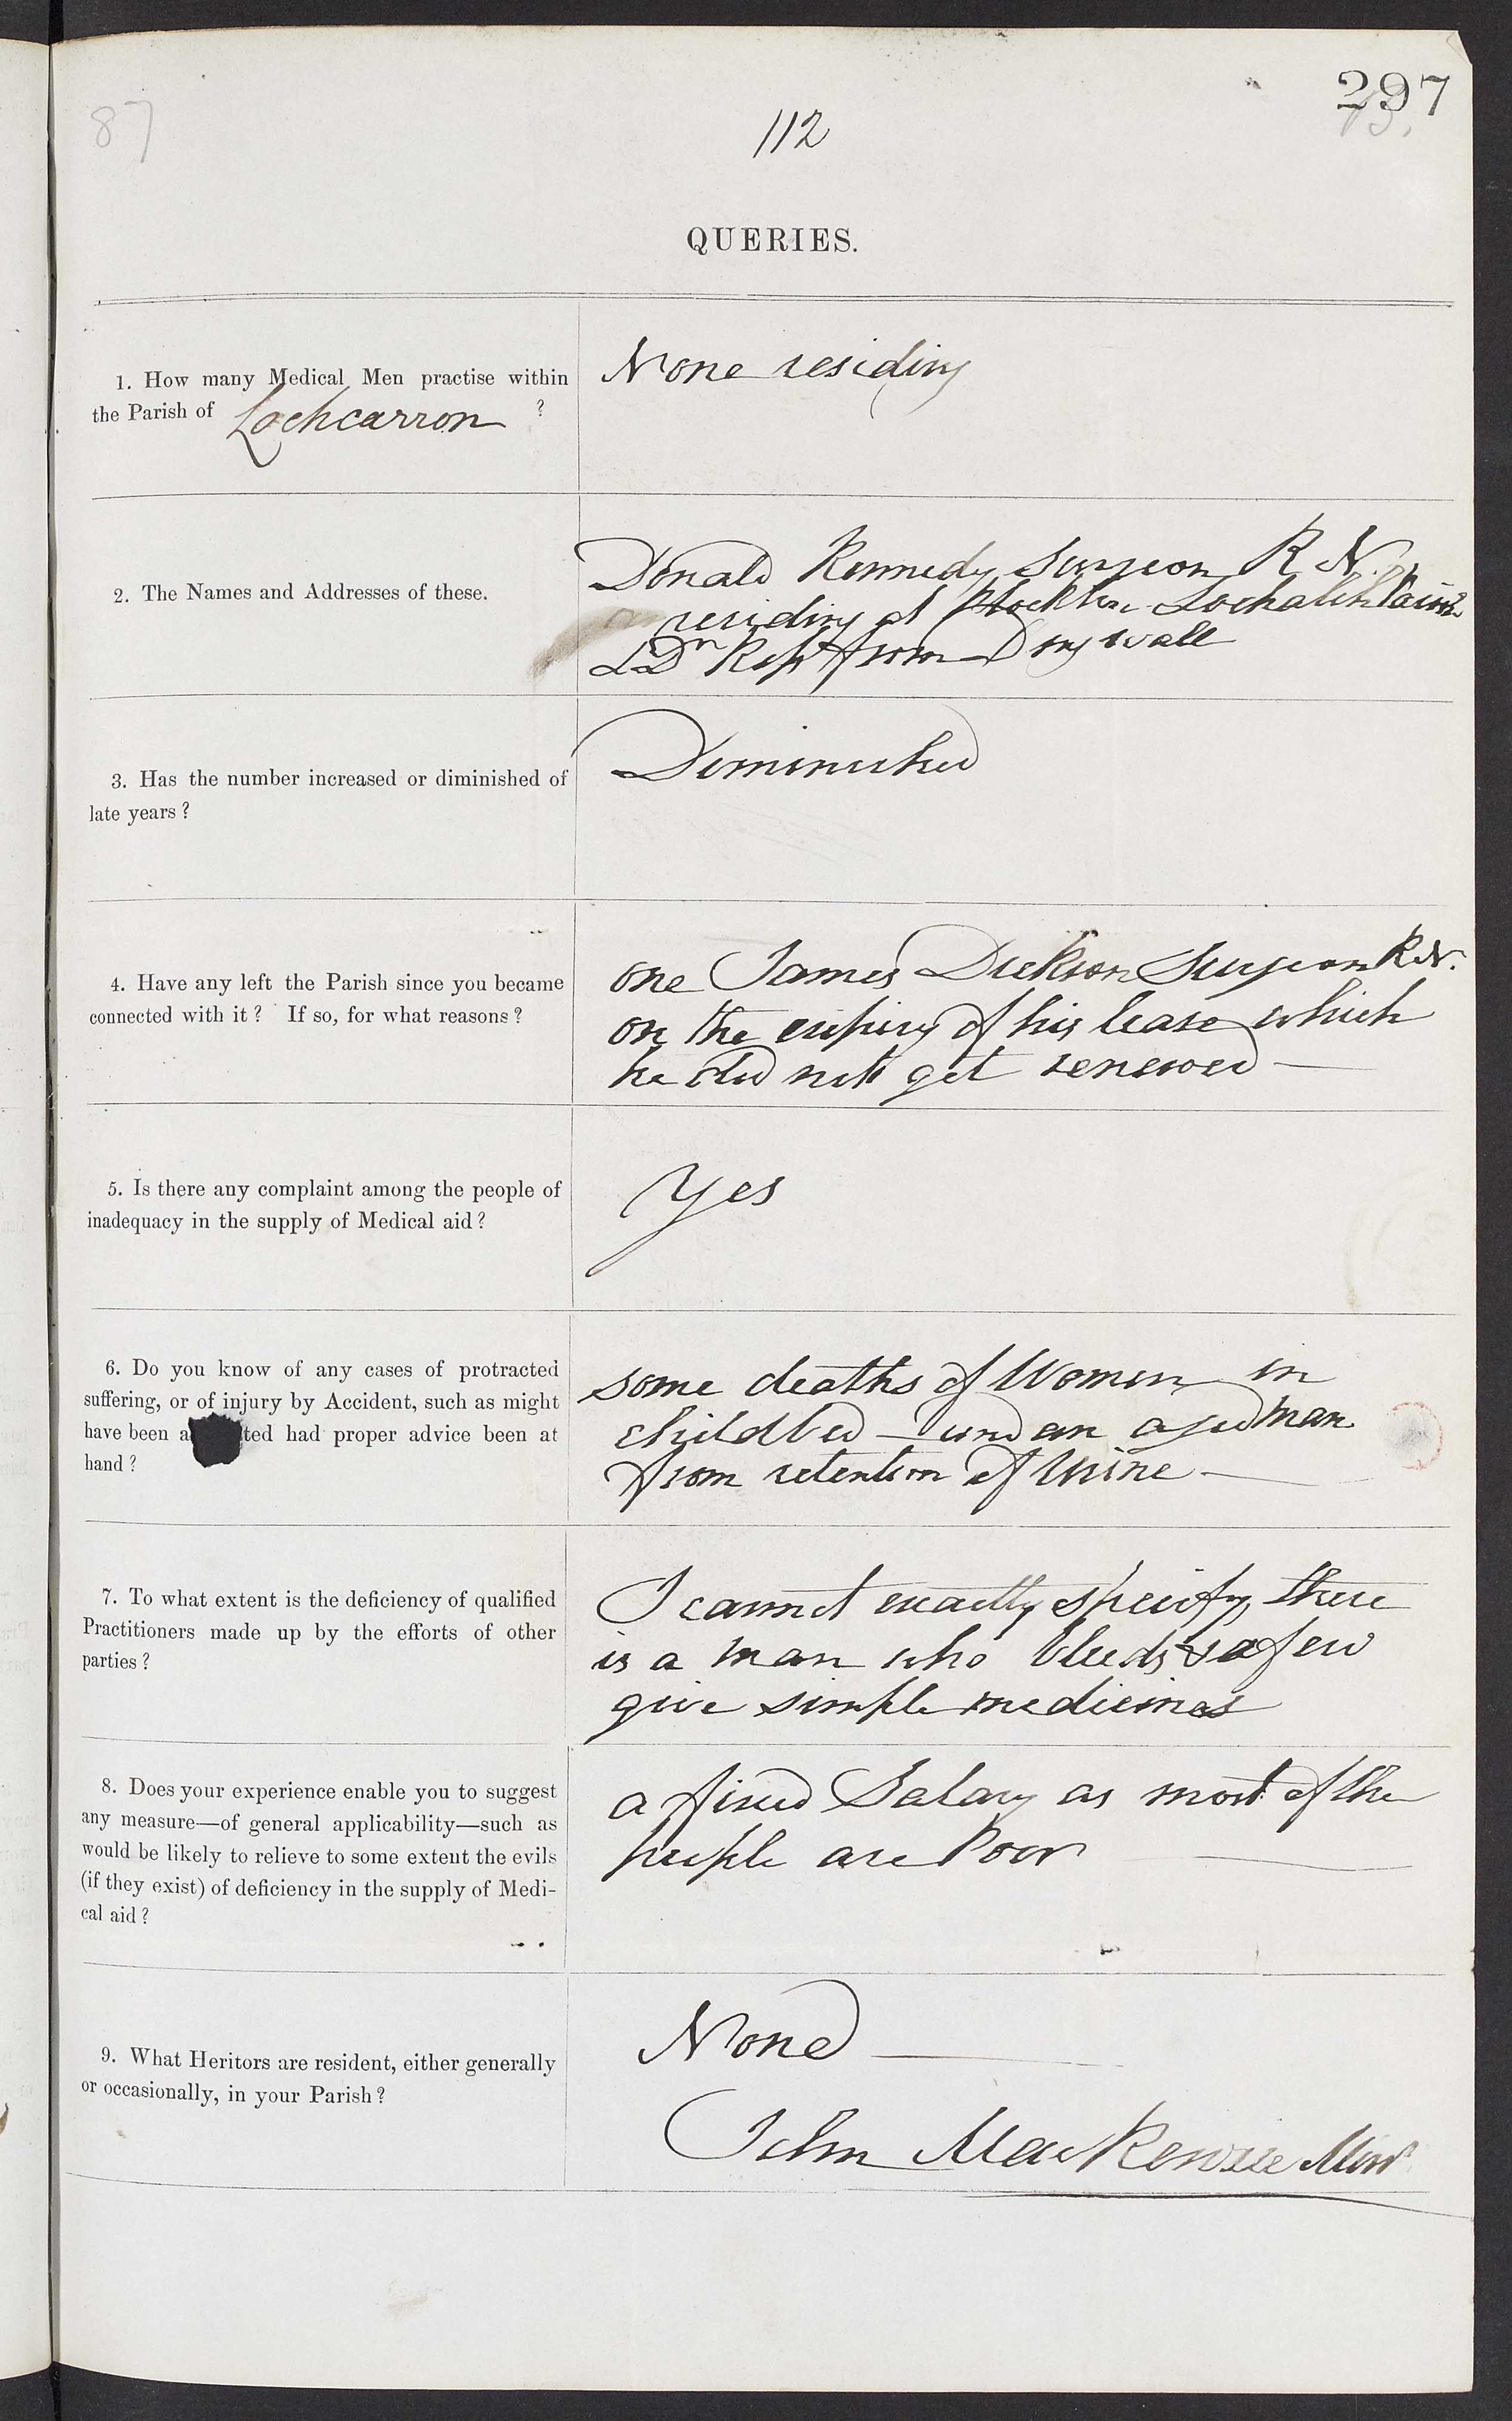 87
112
297
QUERIES.
1. How many Medical Men practise within
the Parish of Lochcarron ?
None residing
2. The Names and Addresses of these.
Donald Kennedy Surgeon R. N.
residing at Plockton Lochalsh Parish
& Dr from Dingwall
3. Has the number increased or diminished of
late years ?
Diminished
4. Have any left the Parish since you became
connected with it ? If so, for what reasons ?
one James Dickson Surgeon R.N.
on the expiry of his lease which
he did not get renewed —
5. Is there any complaint among the people of
inadequacy in the supply of Medical aid ?
Yes
6. Do you know of any cases of protracted
suffering, or of injury by Accident, such as might
have been a ted had proper advice been at
hand ?
some deaths of Women in
childbed — and an aged man
from retention of Urine —
7. To what extent is the deficiency of qualified
Practitioners made up by the efforts of other
parties ?
I cannot exactly specify, there
is a man who bleeds & a few
give simple medicines
8. Does your experience enable you to suggest
any measure—of general applicability—such as
would be likely to relieve to some extent the evils
(if they exist) of deficiency in the supply of Medi-
cal aid ?
a fixed Salary as most of the
people are Poor —
9. What Heritors are resident, either generally
or occasionally, in your Parish ?
None —
John MacKenzie Minr